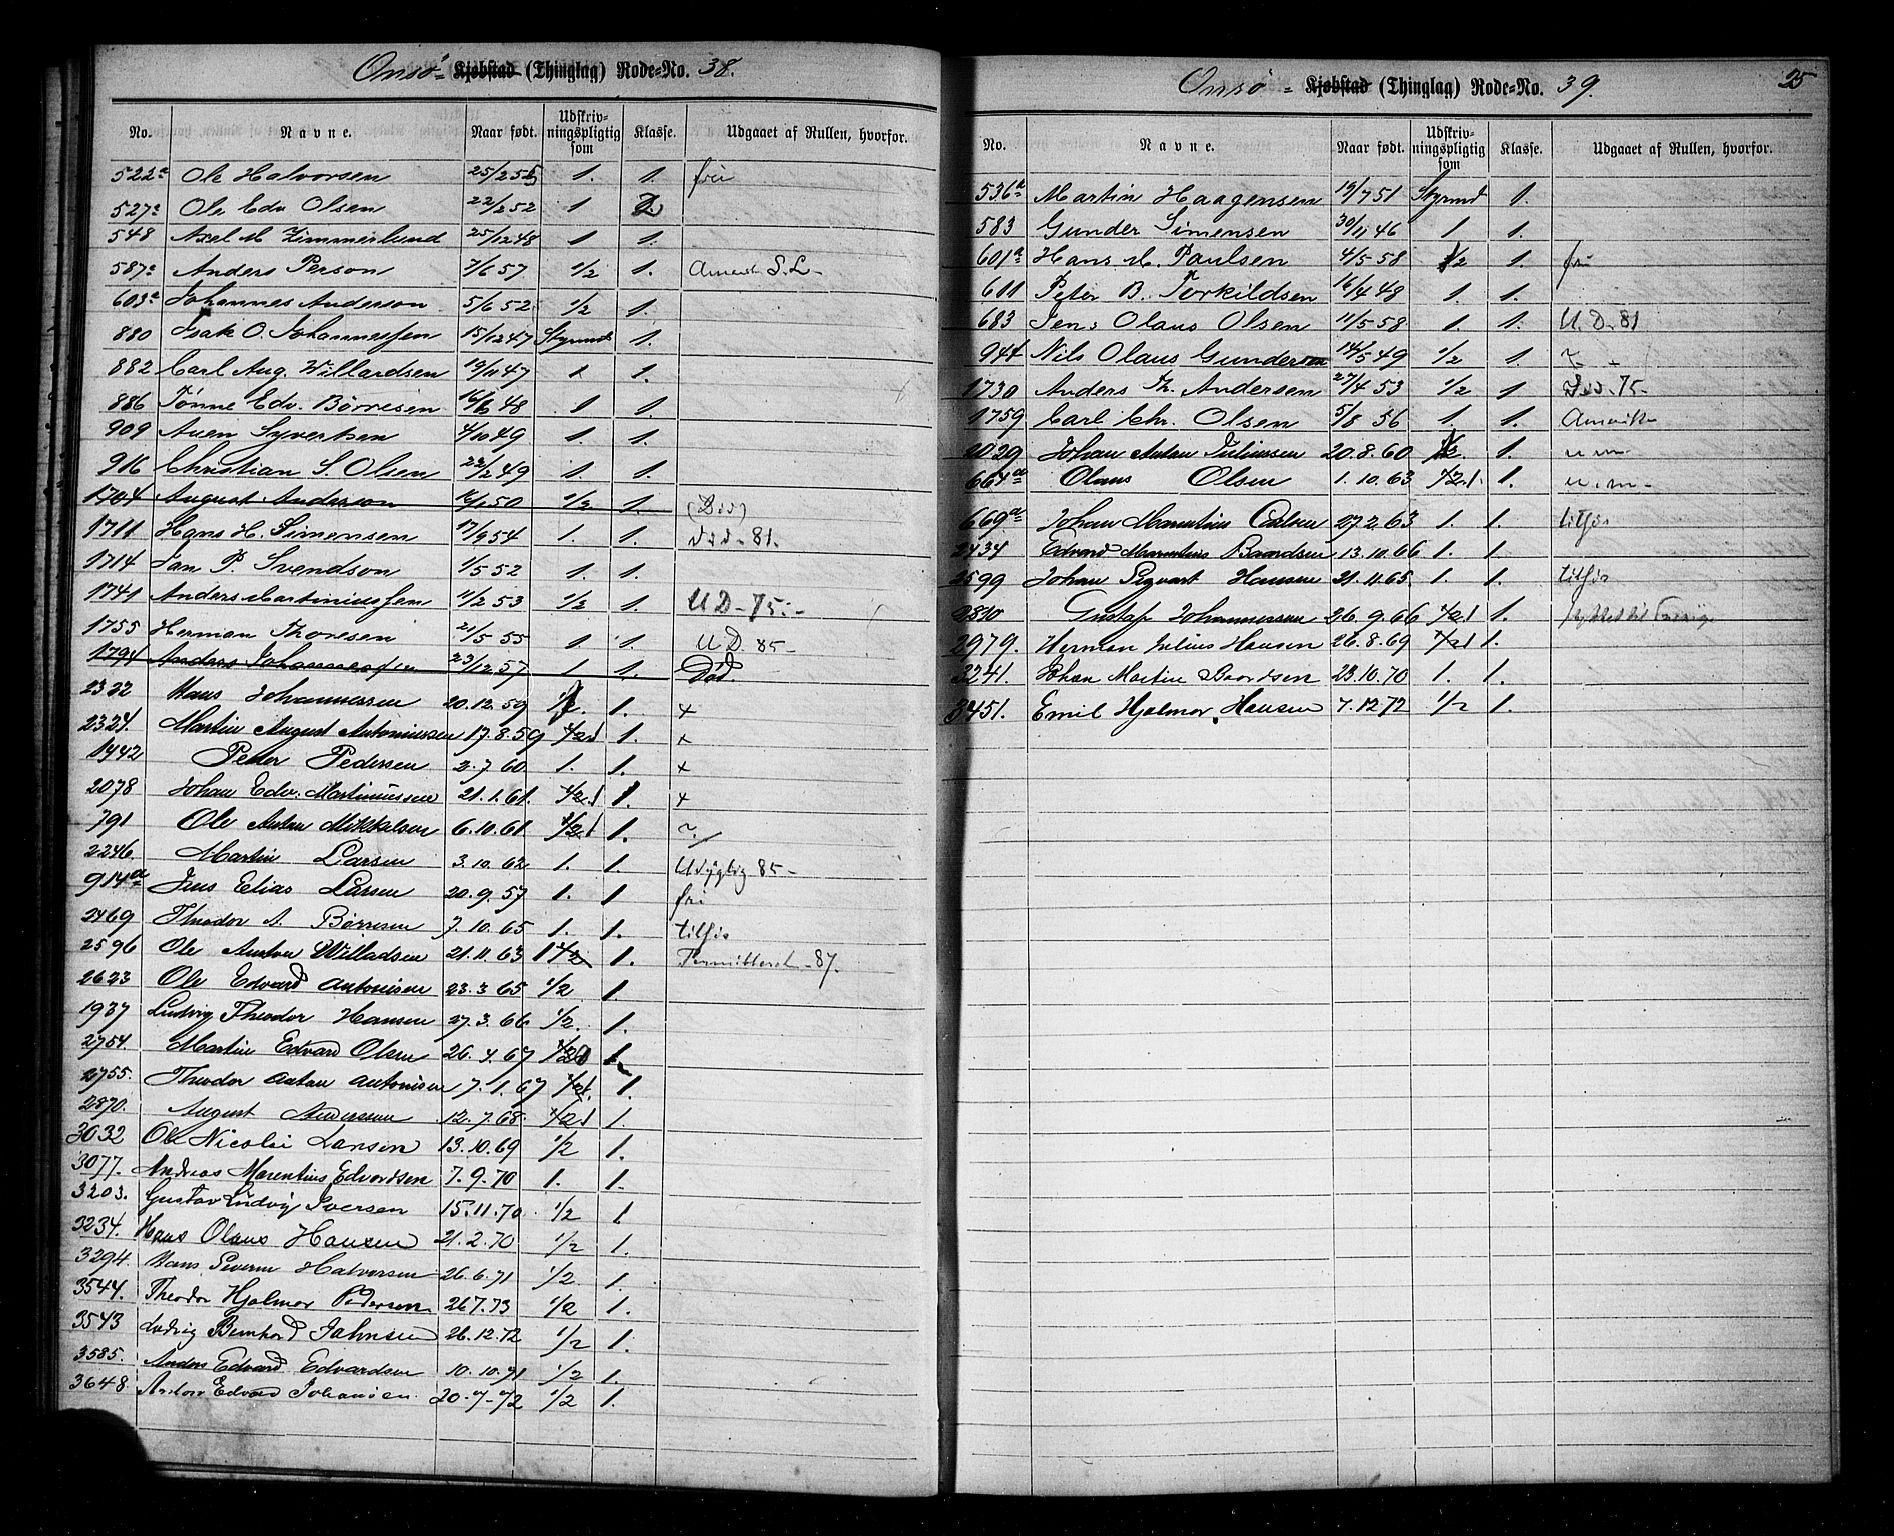 Onsø - Kjøbstad (Thinglag) Rode-No. 38.
No. Navne. Naar født. Udskrivningspligtig som Klasse. Udgaaet af Rullen, hvorfor.
522a Ole Halvorsen 25/2 1. 1. fri
527a Ole Edv Olsen 22/2 52 1 2.
548 Axel M Zimmerlund 25/12 48 1 1.
587a Anders Person 7/6 57 1/2 1.
603a Johannes Anderson 5/6 52 1/2 1.
880 Isak O. Johannessen 15/12 47 Styrmd 1.
882 Carl Aug. Willardsen 19/11 47 1 1.
886 Tønne Edv. Børresen 16/6 48 1 1.
909 Aven Syvertsen 4/10 49 1 1.
916 Christian S. Olsen 22/2 49 1. 1.
1704 August Anderson 50 1/2 1. (Død)
1711 Hans H. Simensen 17/9 54 1. 1. død - 81.
1714 Jan P. Svendson 1/5 52 1. 1.
1741 Anders Martiniussen 11/2 53 1/2 1. U D - 75 -
1755 Herman Thoresen 21/5 55 1. 1. U D. 85 -
1794 Anders Johannessen 23/12 57 1. 1. Død
2322 Hans Johannessen 20.12.59 1. x
2324. Martin August Antoniussen 17.8.59 1/2 1 1. x
1442 Peder Pedersen 2.7.60. 1. 1. x
2078 Johan Edv. Martiniussen 21.1.61. 1/2 1 1. x
791 Ole Anton Mikkelsen 6.10.61 1/2 1 1.
2246. Martin Larsen 3.10.62 1. 1. Udygtig 85 -
914a Jens Elias Larsen 20.9.57 1. 1. fri
2469 Theodor A. Børresen 7.10.65 1. 1. tilfis
2596 Ole Anton Willadsen 21.11.63 1 1/2 1. 87.
2623 Ole Edvard Antonisen 23.3.65 1/2 1.
1937 Ludvig Theodor Hansen 27.3.66 1/2. 1.
2754. Martin Edvard Olsen 26.4.67 1/2 1.
2755. Theodor Anton Antonisen 7.1.67 1/2 1. 1.
2870. August Anderssen 12.7.68. 1/2 1 1.
3032 Ole Nicolai Larsen 13.10.69 1/2 1.
3077. Andreas Marentius Edvardsen 7.9.70 1. 1.
3203. Gustav Ludvig Iversen 15.11.70. 1/2 1
3234. Hans Olaus Hansen 21.2.70 1/2 1.
3294. Hans Severin Halvorsen 26.6.71 1/2 1.
3544. Theodor Hjalmar Pedersen 26 7.73 1/2 1.
3543 Ludvig Bernhard Jahnsen 26.12.72 1/2 1.
3585. Anders Edvard Edvardsen 10.10.71 1/2 1.
3648 Anton Edvard Johansen 20-7-72 1/2 1.
25
Onsø - Kjøbstad (Thinglag) Rode-No. 39.
No. Navne. Naar født. Udskrivningspligtig som Klasse. Udgaaet af Rullen, hvorfor.
536a Martin Haagensen 19/7 51 Styrmd 1.
583 Gunder Simensen 30/11 46 1 1.
601a Hans M. Paulsen 4/5 58 1/2 1. fri
611 Peter B. Torkildsen 16/4 48 1. 1.
683 Jens Olaus Olsen 11/5 58 1. 1. U. D. 81
944 Nils Olaus Gunderson 14/5 49 1/2 1.
1730 Anders Th. Andersen 27/4 53 1/2 1. Død - 75 -
1759 Carl Chr. Olsen 5/8 56 1. 1. Amerika
2029 Johan Anton Juliussen 20.8.60 1/2 1.
664a Olaus Olsen 1.10.63 1/2 1. 1.
669a Johan Marentius Carlsen 27.2.63 1. 1. tilfis
2434 Edvard Marentius Baardsen 13.10.66 1. 1.
2599 Johan Sigvart Hansen 21.11.65 1. 1. tilfis
2810 Gustaf Johannessen 26.9.66 1/2 1 1. flyttet til Sverige
2979. Herman Julius Hansen 26.8.69 1/2 1 1.
3241. Johan Martin Baardsen 23.10.70 1. 1.
3451. Emil Hjalmar Hansen 7.12 72 1/2 1.